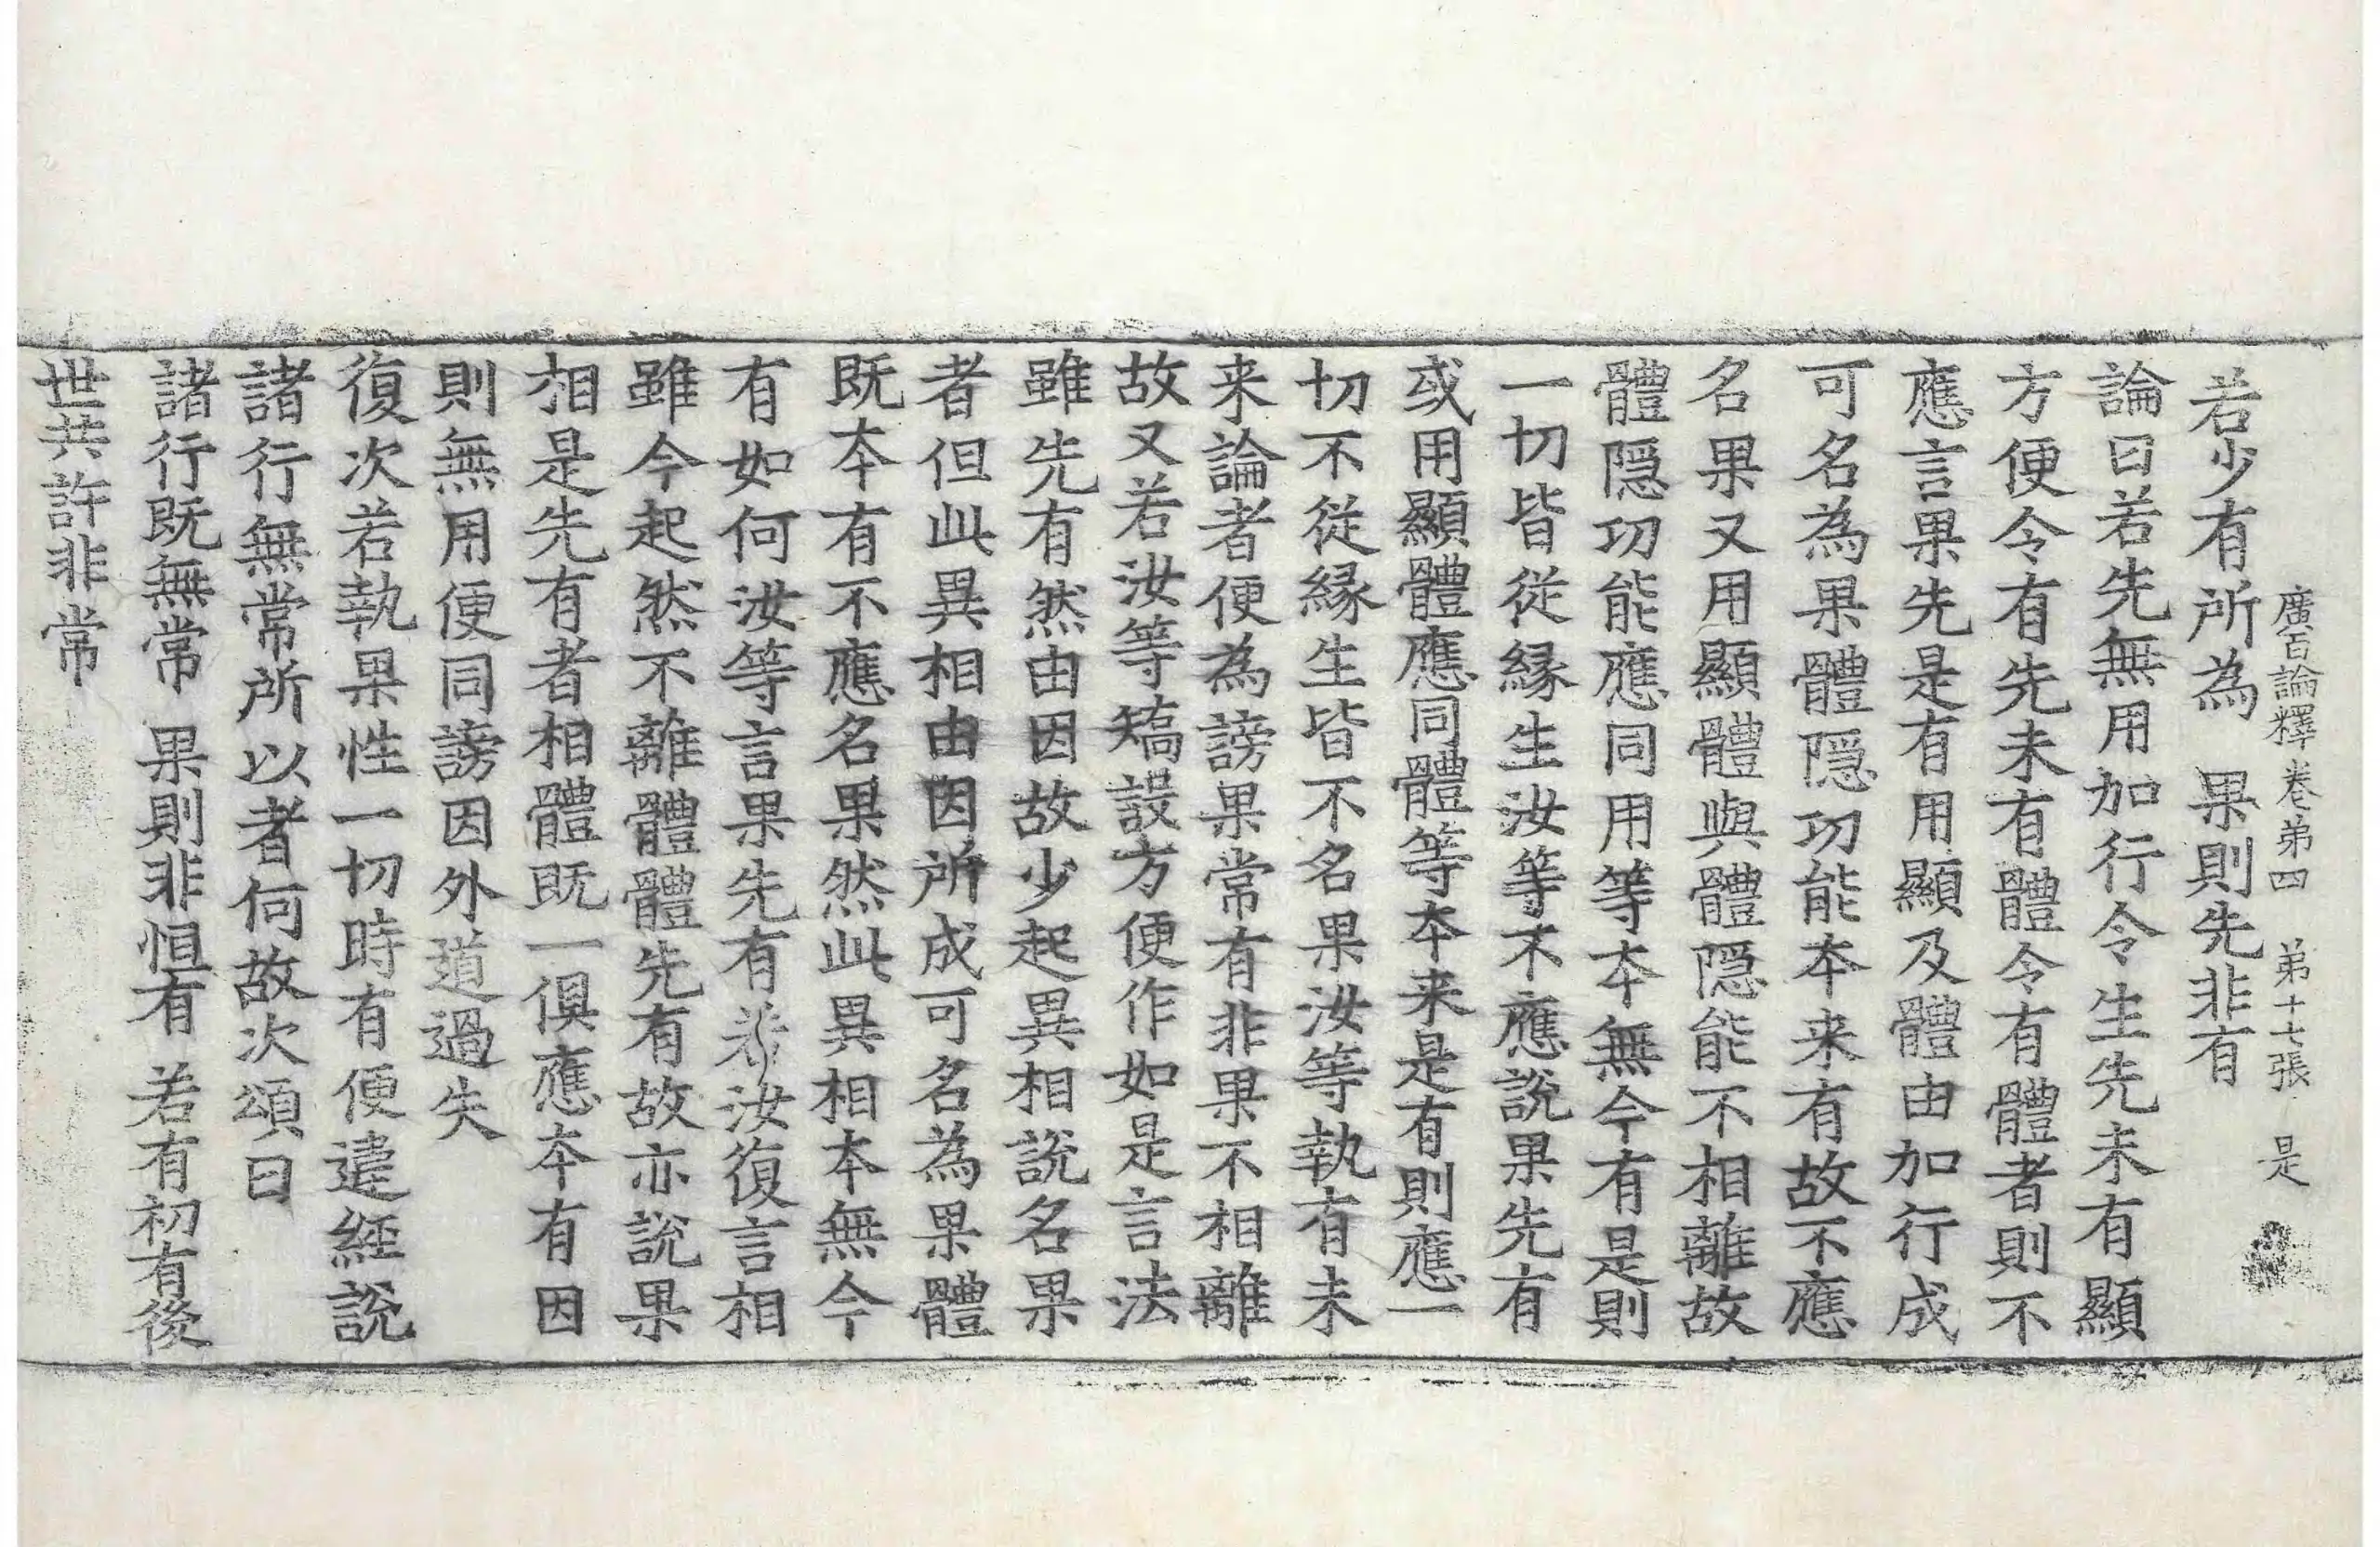 廣百論釋卷弟四　弟十七張　是
若少有所為　果則先非有
論曰若先無用加行令生先未有顯
方便令有先未有體令有體者則不
應言果先是有用顯及體由加行成
可名為果體隱功能本来有故不應
名果又用顯體與體隱能不相離故
體隱功能應同用等本無今有是則
一切皆從緣生汝等不應說果先有
或用顯體應同體等本来是有則應一
切不從緣生皆不名果汝等執有未
来論者便為謗果常有非果不相離
故又若汝等矯設方便作如是言法
雖先有然由因故少起異相說名果
者但此異相由因所成可名為果體
既本有不應名果然此異相本無今
有如何汝等言果先有若汝復言相
雖今起然不離體體先有故亦說果
相是先有者相體既一俱應本有因
則無用便同謗因外道過失
復次若執果性一切時有便違經說
諸行無常所以者何故次頌曰
諸行既無常　果則非恒有　若有初有後
世共許非常